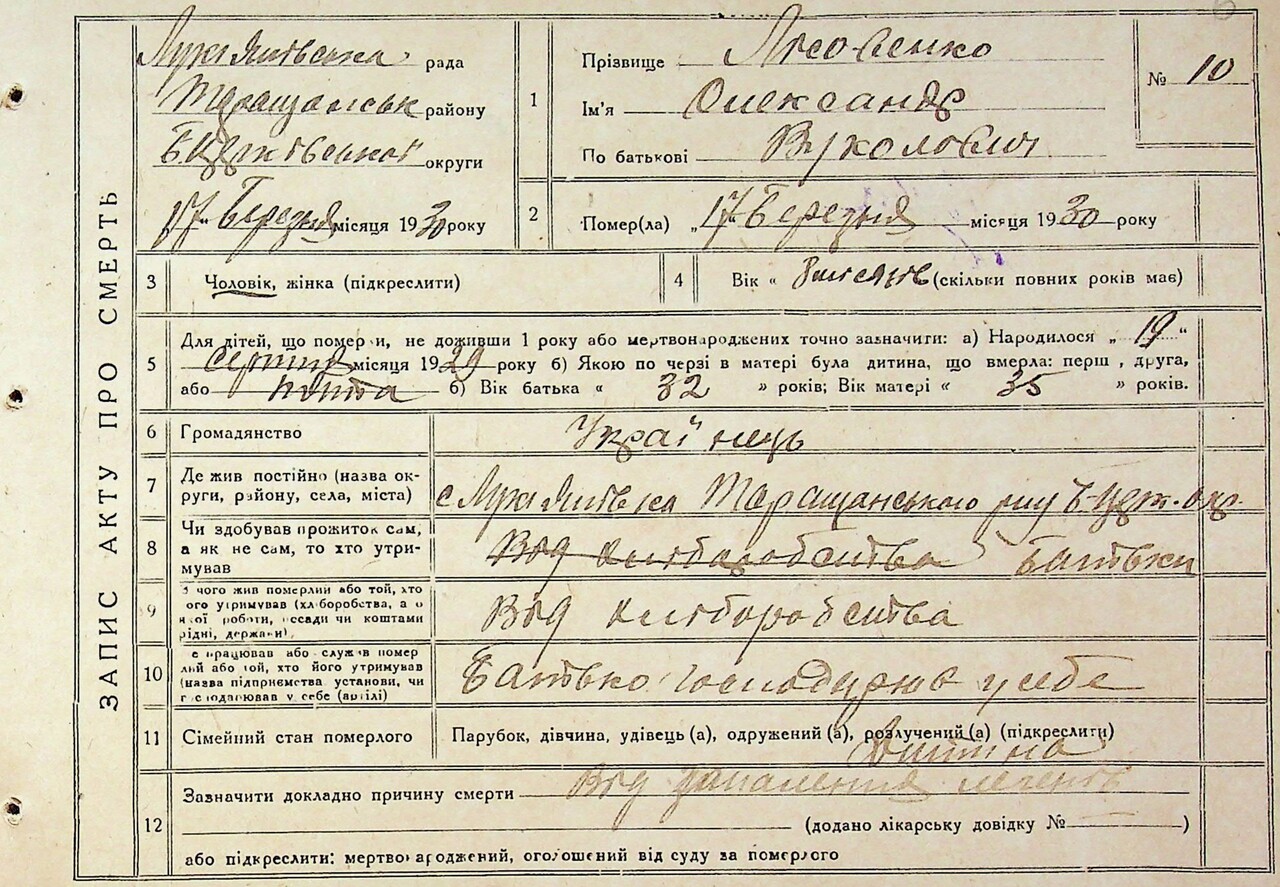 ЗАПИС АКТУ ПРО СМЕРТЬ
Лук'янівська рада
Таращанськ району
Б.Церківської округи
"17" Березня місяця 1930 року
1
Прізвище Лісовенко
Ім'я Олександр
По батькові Вуколович
№ 10
2
Помер(ла) „17" Березня місяця 1930 року
3 Чоловік, жінка (підкреслити)
4 Вік „ 7 місяців (скільки повних років має)
5
Для дітей, що померли, не доживши 1 року або мертвонароджених точно зазначити: а) Народилося „ 19 "
серпня місяця 1929 року б) Якою по черзі в матері була дитина, що вмерла: перш , друга,
або п'ята б) Вік батька „ 32 " років; Вік матері „ 35 " років.
6 Громадянство Українець
7 Де жив постійно (назва ок-
руги, району, села, міста) с Лук'янівка Таращанського р-ну Б-Церк. окр
8 Чи здобував прожиток сам,
а як не сам, то хто утри-
мував Від хліборобства Батьки
9 З чого жив померлий або той, хто
його утримував (хліборобства, а о
якої роботи, посади чи коштами
рідні, держави) Від хліборобства
10 Де працював або служив помер
лий або той, хто його утримував
(назва підприємства установи, чи
господарював у себе (артілі) Батько господарює у себе
11 Сімейний стан померлого Парубок, дівчина, удівець (а), одружений (а), розлучений (а) (підкреслити)
дитина
12
Зазначити докладно причину смерти Від запалення легенів
(додано лікарську довідку № )
або підкреслити: мертвонароджений, оголошений від суду за померлого